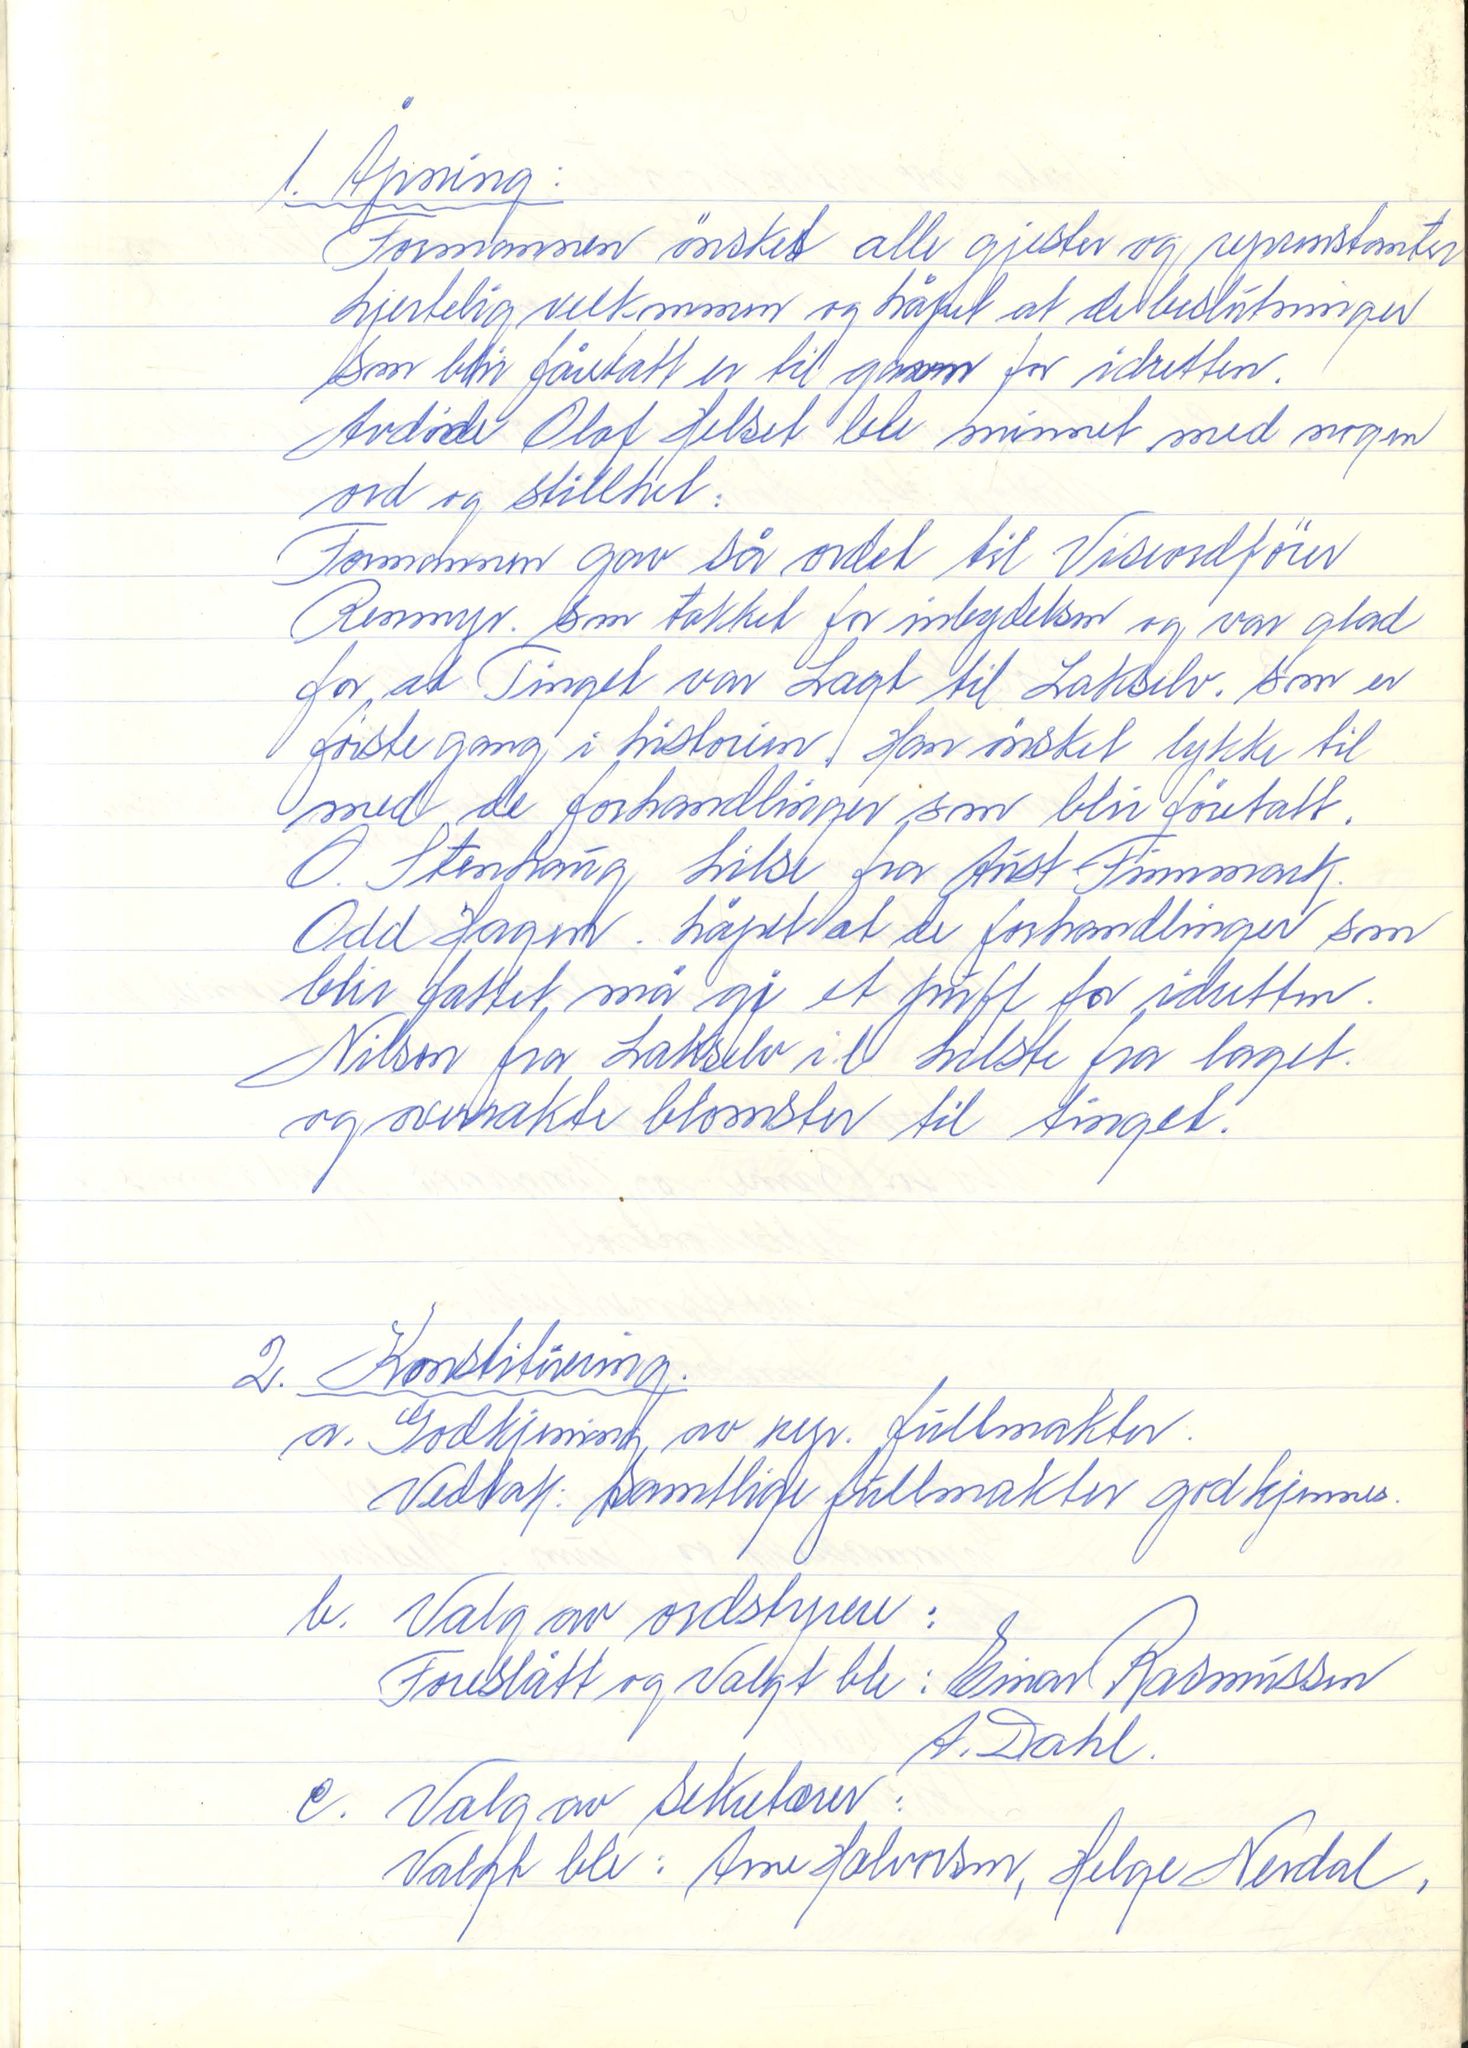 1. Åpning:
Formannen önsket alle gjester og representanter
hjertelig velkommen og håpet at de beslutninger
som blir företatt er til gavn for idretten.
Avdöde Olaf Helset ble minnet med nogen
ord og stillhet.
Formannen gav så ordet til Viseordförer
Rennyr. som takket for inbydelsen og var glad
for at Tinget var Lagt til Lakselv. som er
förste gang i historien. Han önsket lykke til
med de forhandlinger som blir företatt.
O. Stenhaug hilse fra Aust-Finnmark.
Odd Hagen. håpet at de forhandlinger som
blir fattet må gi et puff for idretten.
Nilsen fra Lakselv i.l hilste fra laget.
og overrakte blomster til tinget.
2. Konstituering.
a. Godkjening av repr. fullmakter.
Vedtak: Samtlige fullmakter godkjennes.
b. Valg av ordstyrere:
Foreslått og Valgt ble: Einar Rasmussen
A. Dahl.
c. Valg av Sekretærer:
Valgt ble: Arne Halvorsen, Helge Nerdal,